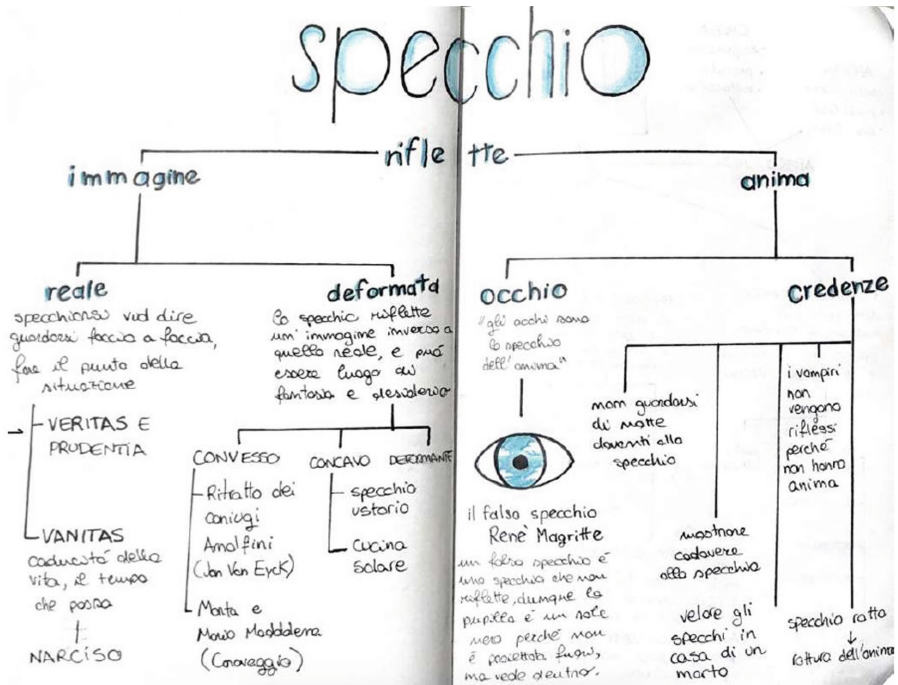 specchio
riflette
immagine
anima
reale
specchiarsi vuol dire
guardarsi faccia a faccia,
fare il punto della
situazione
VERITAS E
PRUDENTIA
VANITAS
caducità della
vita, il tempo
che passa
NARCISO
1
deformata
lo specchio riflette
un'immagine inversa a
quella reale, e può
essere luogo di
fantasia e desiderio
CONVESSO
Ritratto dei
coniugi
Arnolfini
(Jan Van Eyck)
Marta e
Maria Maddalena
(Caravaggio)
CONCAVO
specchio
ustorio
cucina
solare
DEFORMANTE
occhio
"gli occhi sono
lo specchio
dell'anima"
il falso specchio
Renè Magritte
un falso specchio è
uno specchio che non
riflette, dunque la
pupilla è un sole
nero perché non
è proiettata fuori,
ma vede dentro.
credenze
non guardarsi
di notte
davanti allo
specchio
mostrare
cadavere
allo specchio
velare gli
specchi in
casa di un
morto
i vampiri
non
vengono
riflessi
perché
non hanno
anima
specchio rotto
↓
rottura dell'anima